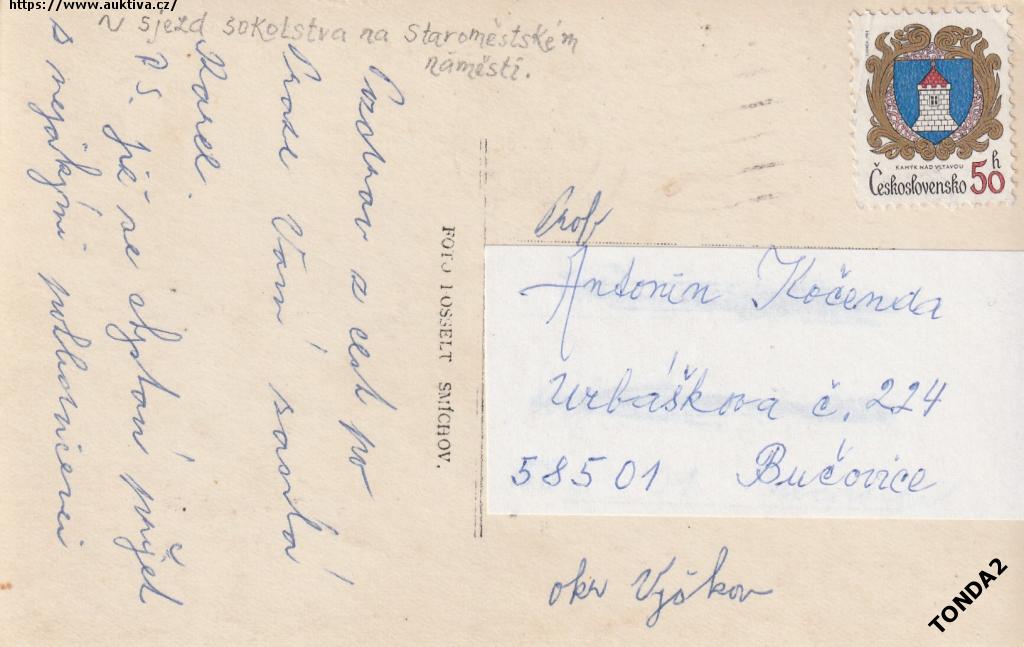 https://www.auktiva.cz/
V sjezd sokolstva na Staroměstském
náměstí.
Pozdrav z cest po
Praze Vám zasílá
Karel.
P.S. již se chystám přijet
s nějakými pohlednicemi
FOTO FOSSELT SMÍCHOV.
KAMÝK NAD VLTAVOU
Československo 50 h
Prof.
Antonín Kočenda
Urbáškova č. 224
58501 Bučovice
okr Vyškov
TONDA2